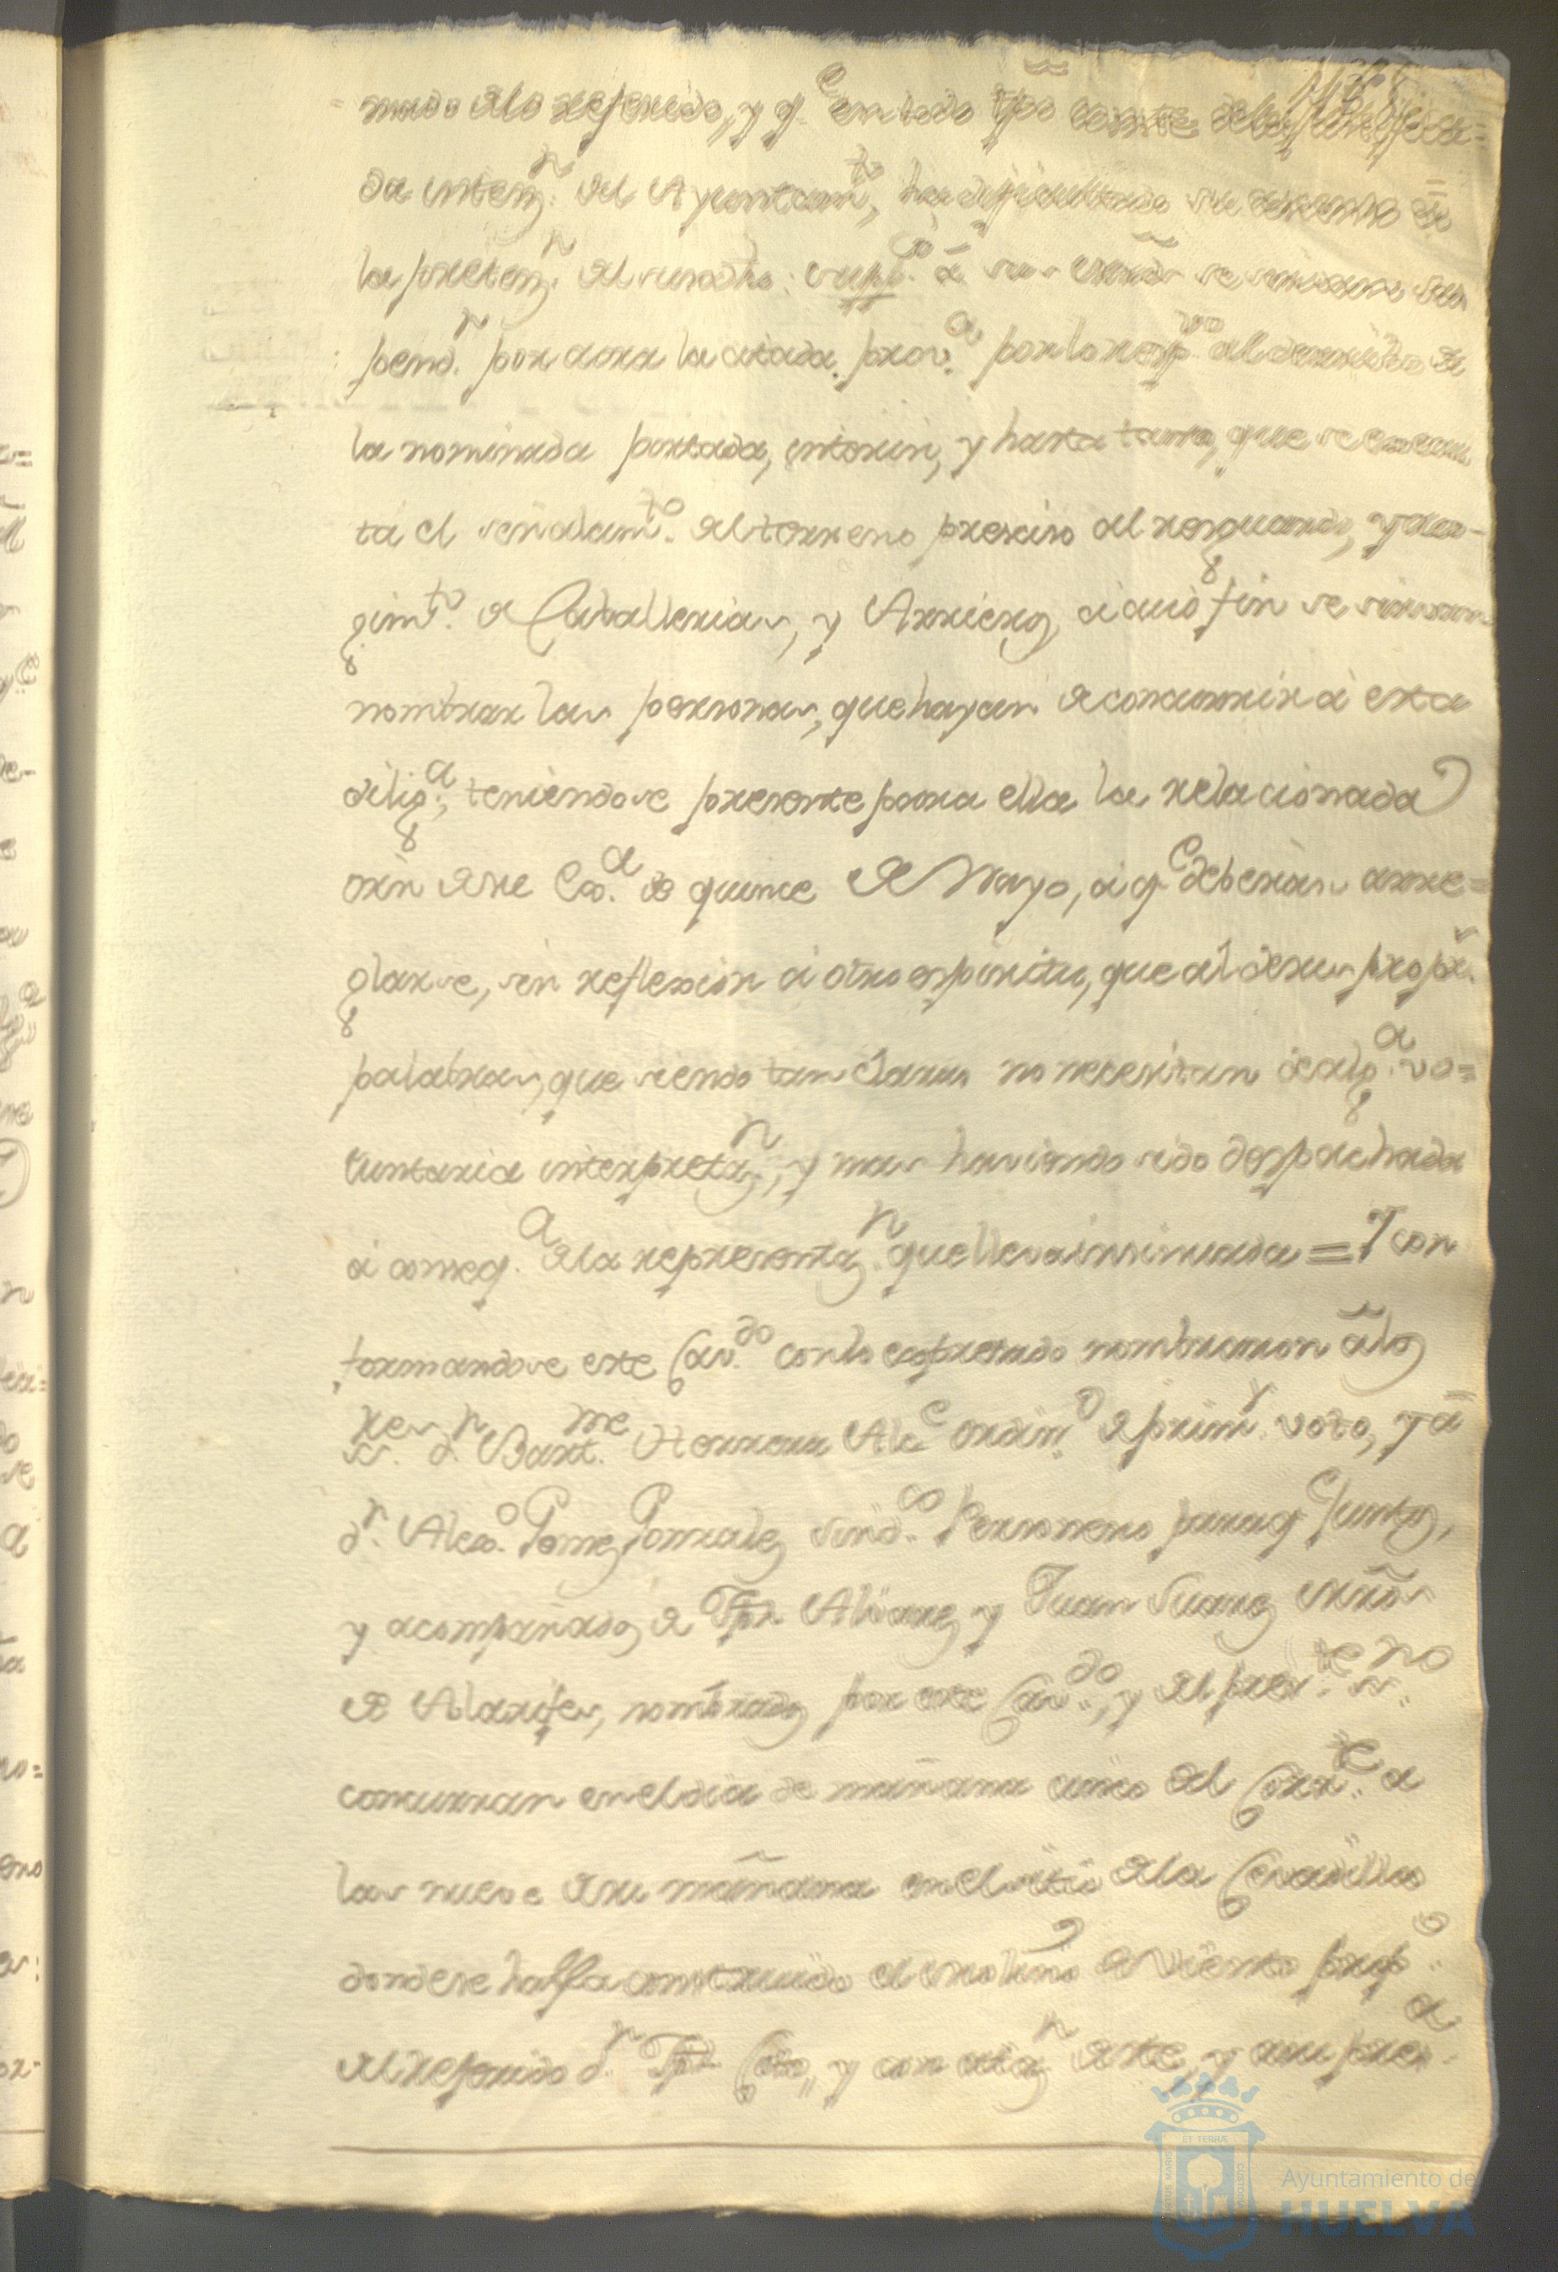 mado de lo referido, y q.e en todo tpo conste de la
da intenz.n del Ayuntam.to, ha dificultado su
la pretenz.n del susodho: supp.co â sus se sirvan sus
pend.n por aora la citada prov.a por lo resp.vo al derrivo de
la nominada portada, interin, y hasta tanto, que se execu
ta el señalam.to del terreno presciso del resguardo, y reco-
gim.to de Cavallerias, y Arrieros, á cuio fin se sirvan
nombrar las personas, que hayan de concurrir á esta
dilig.a, teniendose presente para ella la relacionada
orn de Ex.a de quince de Mayo, á q.e deberán arre=
glarse, sin reflexion á otro espiritu, que al de sus prop.s
palabras, que siendo tan claras no necesitan de alg.a vo=
luntaria interpretaz.n, y mas haviendo sido despachada
á conseq.a de la representaz.n que lleva insinuada = Y con
formandose este Cav.do con lo expresado nombraron â los
s.res d.n Bart.me Herrera Alc.e ordin.o de prim.r voto, y â
d.n Alex.o Gomez Gonzalez Sind.co Personero para q.e juntos,
y acompañados de Albarez y Juan Suarez
de Alarifes, nombrados por este Cav.do, y del pres.te ss.no
concurran en el dia de mañana cinco del Corr.te a
las nueve de su mañana en el sitio de la Cevadilla
donde se halla construido el Molino de Viento prop.o
del referido d.n Coto, y con citaz.n de este, y a su pres.a
Ayuntamiento de
HUELVA